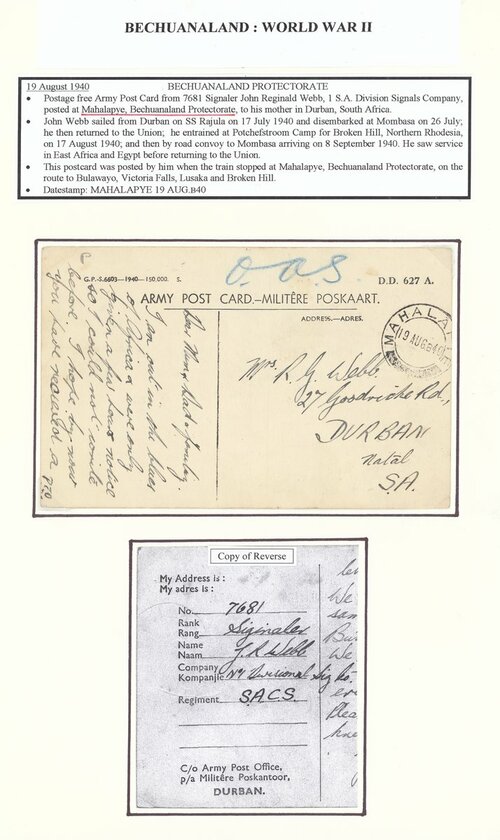 BECHUANALAND : WORLD WAR II
19 August 1940 BECHUANALAND PROTECTORATE
• Postage free Army Post Card from 7681 Signaler John Reginald Webb, 1 S.A. Division Signals Company,
posted at Mahalapye, Bechuanaland Protectorate, to his mother in Durban, South Africa.
• John Webb sailed from Durban on SS Rajula on 17 July 1940 and disembarked at Mombasa on 26 July;
he then returned to the Union; he entrained at Potchefstroom Camp for Broken Hill, Northern Rhodesia,
on 17 August 1940; and then by road convoy to Mombasa arriving on 8 September 1940. He saw service
in East Africa and Egypt before returning to the Union.
• This postcard was posted by him when the train stopped at Mahalapye, Bechuanaland Protectorate, on the
route to Bulawayo, Victoria Falls, Lusaka and Broken Hill.
• Datestamp: MAHALAPYE 19 AUG.B40
G.P.-S.6603—1940—150,000. S.
O.A.S.
D.D. 627 A.
ARMY POST CARD.–MILITÊRE POSKAART.
ADDRESS.–ADRES.
MAHALA
19 AUG B40
Mrs. R. G. Webb
27 Goodricke Rd.,
DURBAN
Natal
S.A.
Dear Mum, Dad & family.
I am out in the blues
of Africa & were only
given a few hours notice
so I could not write
before. I hope by now
you have received a
PTO
Copy of Reverse
My Address is :
My adres is :
No. 7681
Rank
Rang Siginaler
Name
Naam J. R Webb
Company
Kompanjie Divisional Sig Ko.
Regiment S.A.C.S.
C/o Army Post Office,
p/a Militêre Poskantoor,
DURBAN.
We